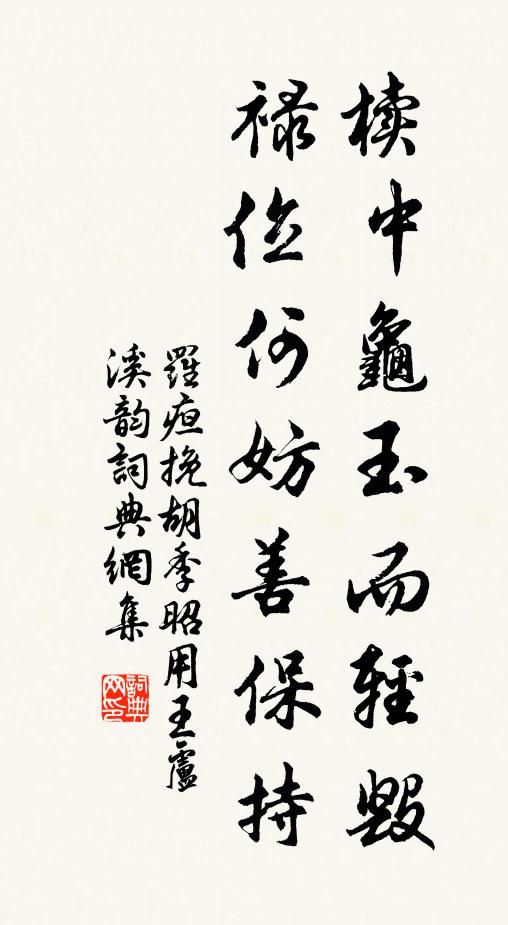 櫝中龜玉而輕毀
祿位何妨善保持
羅疸挽胡季昭用王盧
溪韵詞典網集
詞典网印